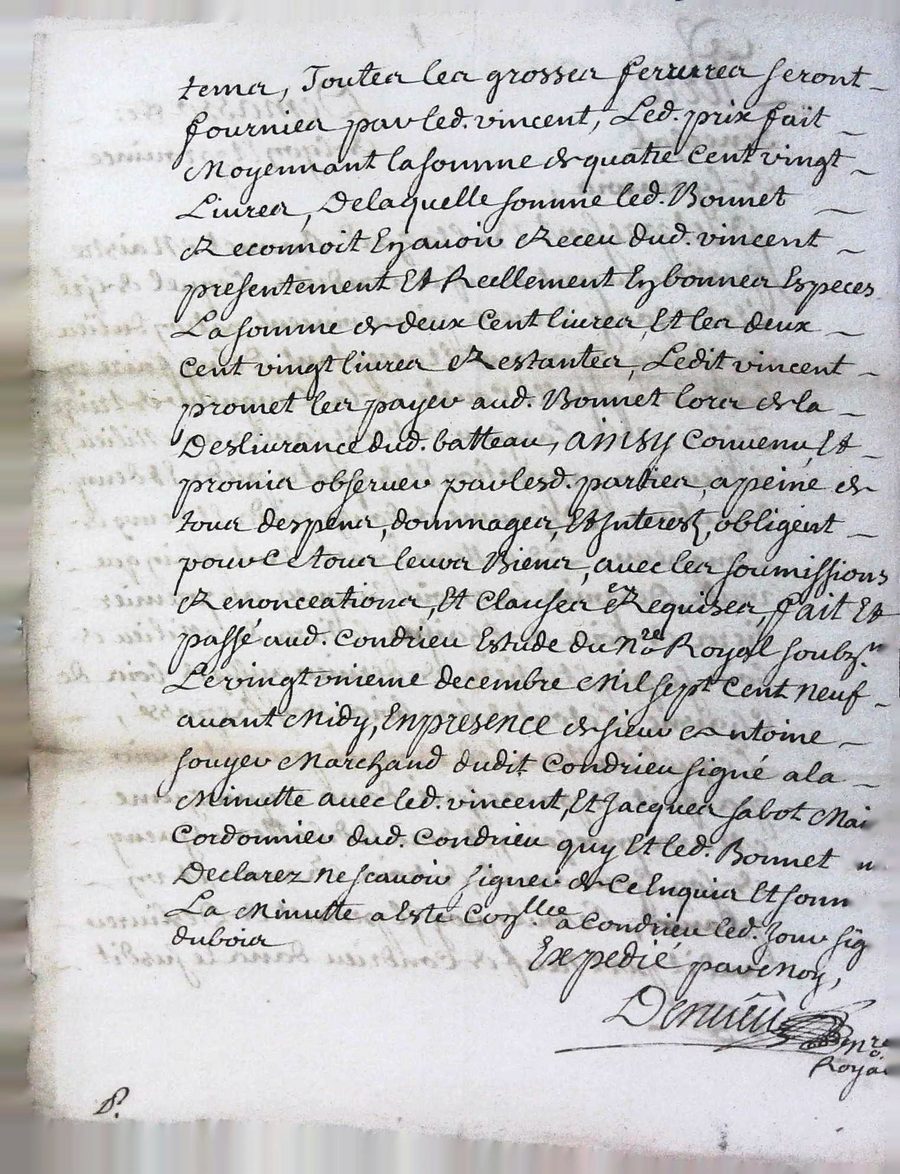 tems, Toutes les grosses ferrures seront
fournies par led. vincent, Led. prix fait
Moyennant la somme de quatre Cent vingt
Livres, De laquelle somme led. Bonnet
Reconnoit En avoir Receu dud. vincent
presentement Et Reellement En bonnes Especes
La somme de deux Cent livres, Et les deux
Cent vingt livres Restantes, Ledit vincent
promet les payer aud. Bonnet lors de la
Deslivrance dud. batteau, ainsy Convenu, Et
promis observer par lesd. parties, a peine de
tous despens, dommages, Et Interest, obligent
pour Ce tous leurs Biens, avec les soumissions
Renonceations, Et Clauses Requises, fait Et
passé aud. Condrieu Estude du Nre Royal soubzn.
Le vingt unieme decembre Mil sept Cent Neuf
avant Midy, En presence de sieur Antoine
souyer Marchand dudit Condrieu signé a la
Minutte avec led. vincent, Et Jacques sabot Mai
Cordonnier dud. Condrieu quy Et led. Bonnet n
Declarez Ne scavoir signer de Ce Enquis Et somm
La Minutte a Este Conllee a Condrieu led. Jour sig
dubois
Expedié par Moy,
nre
Roya